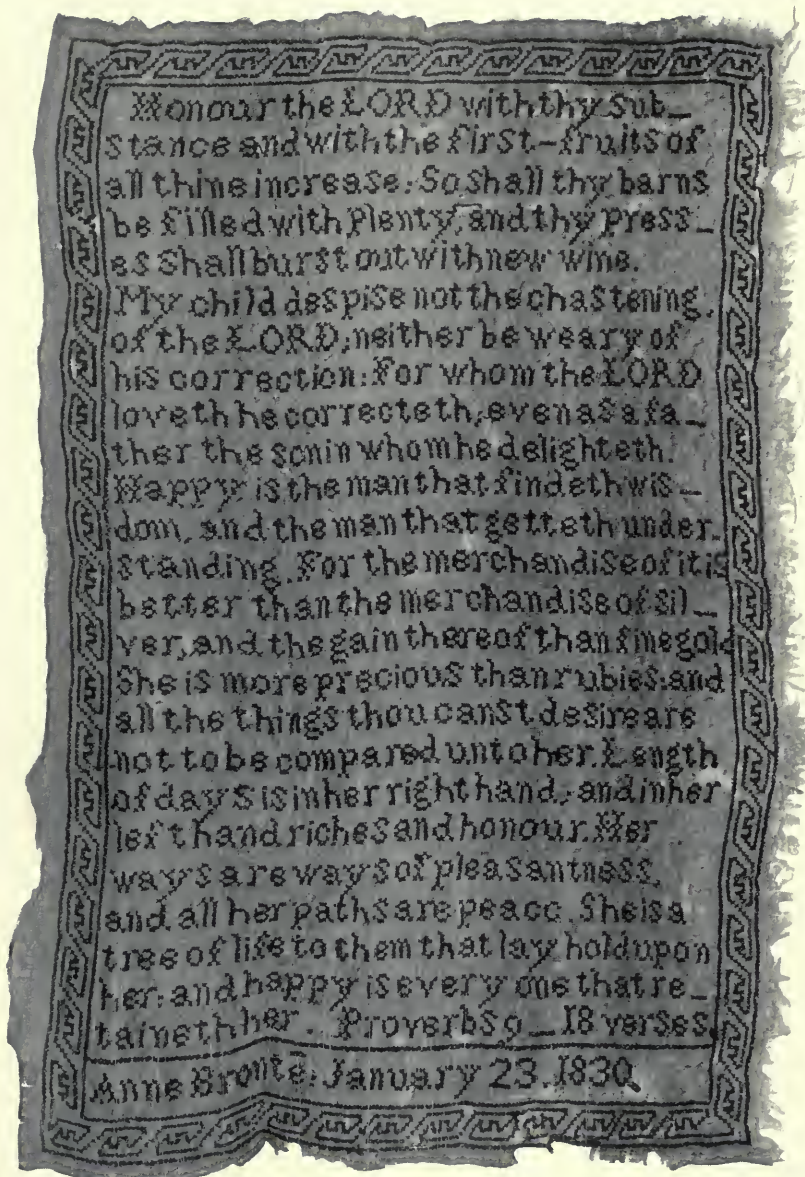 Honour the LORD with thy sub_
stance and with the first-fruits of
all thine increase: So shall thy barns
be filled with plenty, and thy press_
es shall burst out with new wine.
My child despise not the chastening,
of the LORD; neither be weary of
his correction: For whom the LORD
loveth he correcteth; even as a fa_
ther the son in whom he delighteth.
Happy is the man that findeth wis_
dom, and the man that getteth under_
standing. For the merchandise of it is
better than the merchandise of sil_
ver, and the gain thereof than fine gold
She is more precious than rubies: and
all the things thou canst desire are
not to be compared unto her. Length
of days is in her right hand; and in her
left hand riches and honour. Her
ways are ways of pleasantness,
and all her paths are peace. She is a
tree of life to them that lay hold upon
her: and happy is every one that re_
taineth her. Proverbs 9 _ 18 verses.
Anne Brontë: January 23. 1830.